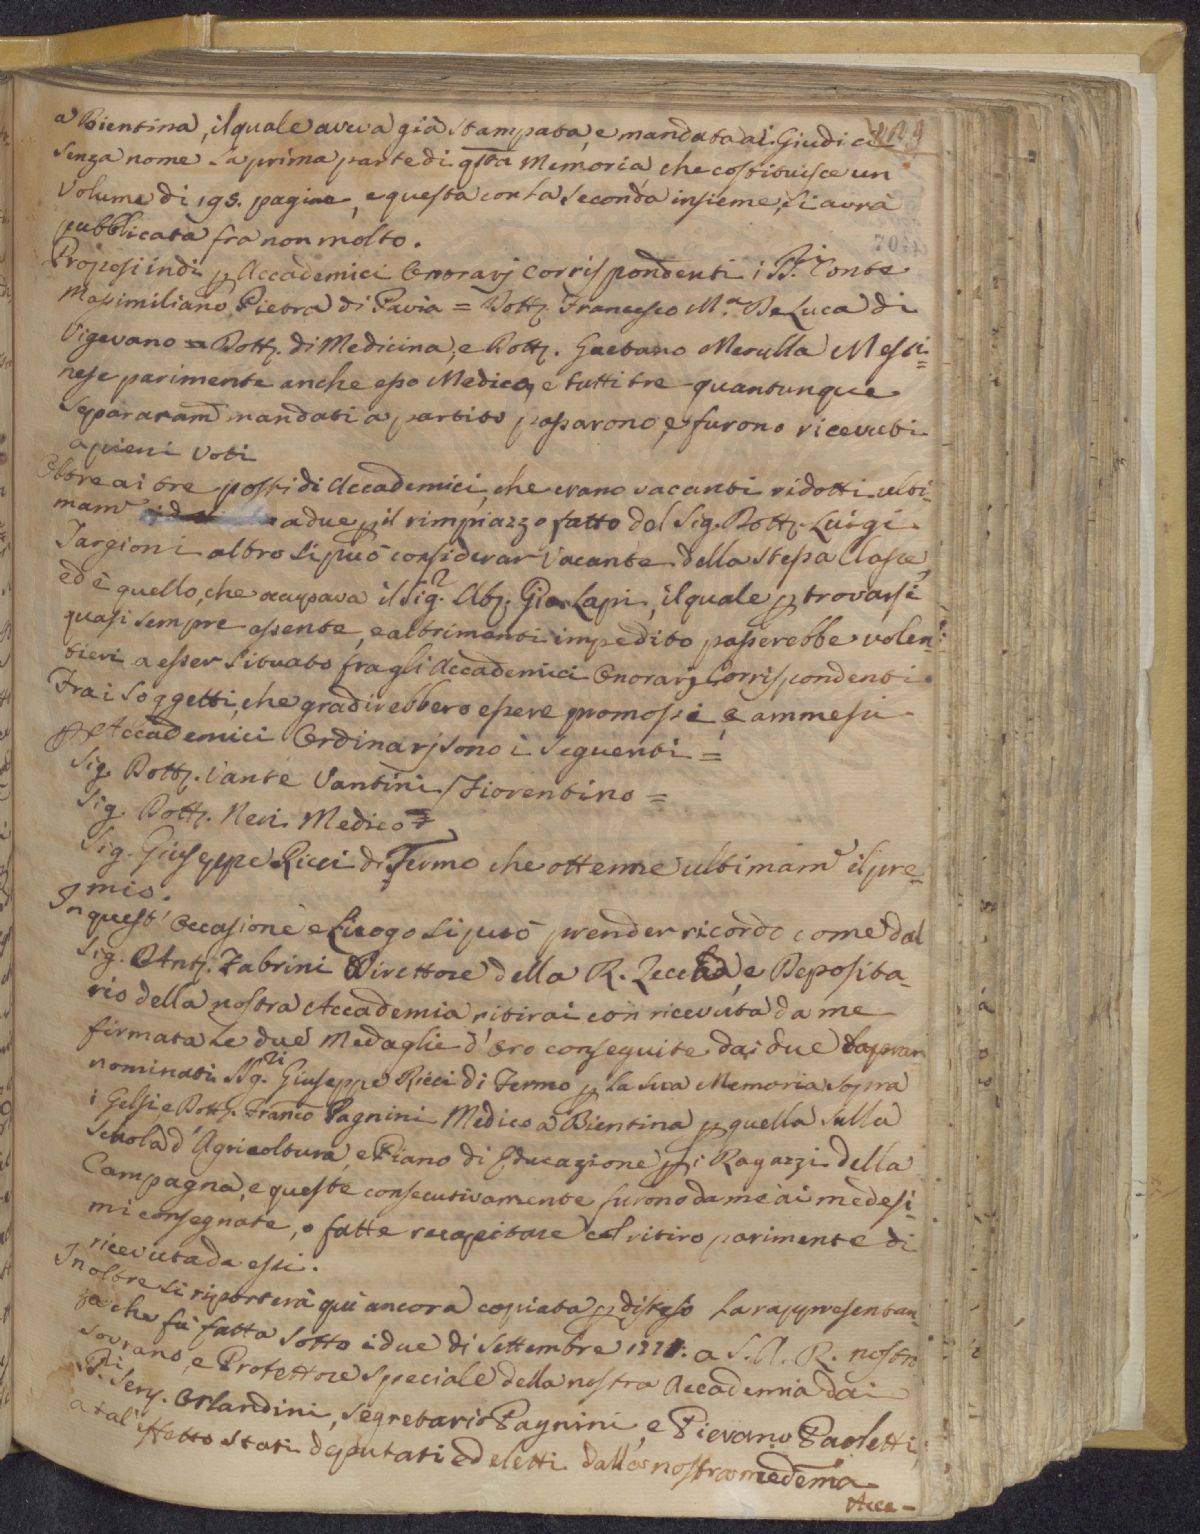 a Bientina, il quale aveva già stampata, e mandata ai Giudici
senza nome la prima parte di qsta Memoria che costituisce un
Volume di 195. pagine, e questa con la seconda insieme, si avrà
pubblicata fra non molto.
Proposi indi p Accademici Onorarj Corrispondenti i SS.ri Conte
Massimiliano Pietra di Pavia = Dott. Francesco M.a De Luca di
Vigevano = Dott. di Medicina, e Dott. Gaetano Merulla Messi=
nese parimente anche esso Medico, e tutti tre quantunque
separatam mandati a partito passarono, e furono ricevuti
a pieni voti
Oltre ai tre posti di Accademici, che erano vacanti ridotti ulti=
mam a due p il rimpiazzo fatto del Sig. Dott. Luigi
Targioni altro si può considerar vacante della stessa Classe,
ed è quello, che occupava il Sig.r Ab. Gio. Lapi, il quale p trovarsi
quasi sempre assente, e altrimenti impedito passerebbe volen=
tieri a esser situato fra gli Accademici Onorarj Corrispondenti.
Fra i Soggetti, che gradirebbero essere promossi, e ammessi
p Accademici Ordinarj sono i seguenti =
Sig. Dott. Vante Vantini Fiorentino =
Sig. Dott. Neri Medico =
Sig. Giuseppe Ricci di Fermo che ottenne ultimam il pre=
mio.
In quest' Occasione e Luogo si può prender ricordo come dal
Sig. Ant. Fabrini Direttore della R. Zecca, e Deposita=
rio della nostra Accademia ritirai con ricevuta da me
firmata le due Medaglie d'Oro conseguite dai due sopran
nominati SSg.ri Giuseppe Ricci di Fermo p la sua Memoria sopra
i Gelsi e Dott. Franco Pagnini Medico a Bientina p quella sulla
Scuola d'Agricoltura, e Piano di Educazione p i Ragazzi della
Campagna, e queste consecutivamente furono da me ai medesi=
mi consegnate, o fatte recapitare col ritiro parimente di
ricevuta da essi.
Inoltre si riporterà quì ancora copiata p disteso la rappresentan=
za che fu fatta sotto i due di Settembre a S. A. R. nostro
Sovrano, e Protettore speciale della nostra Accademia dai
Orlandini, Segretario Pagnini, e Pievano Paoletti,
a tal' effetto stati deputati ed eletti dalla nostra medema
Acca=